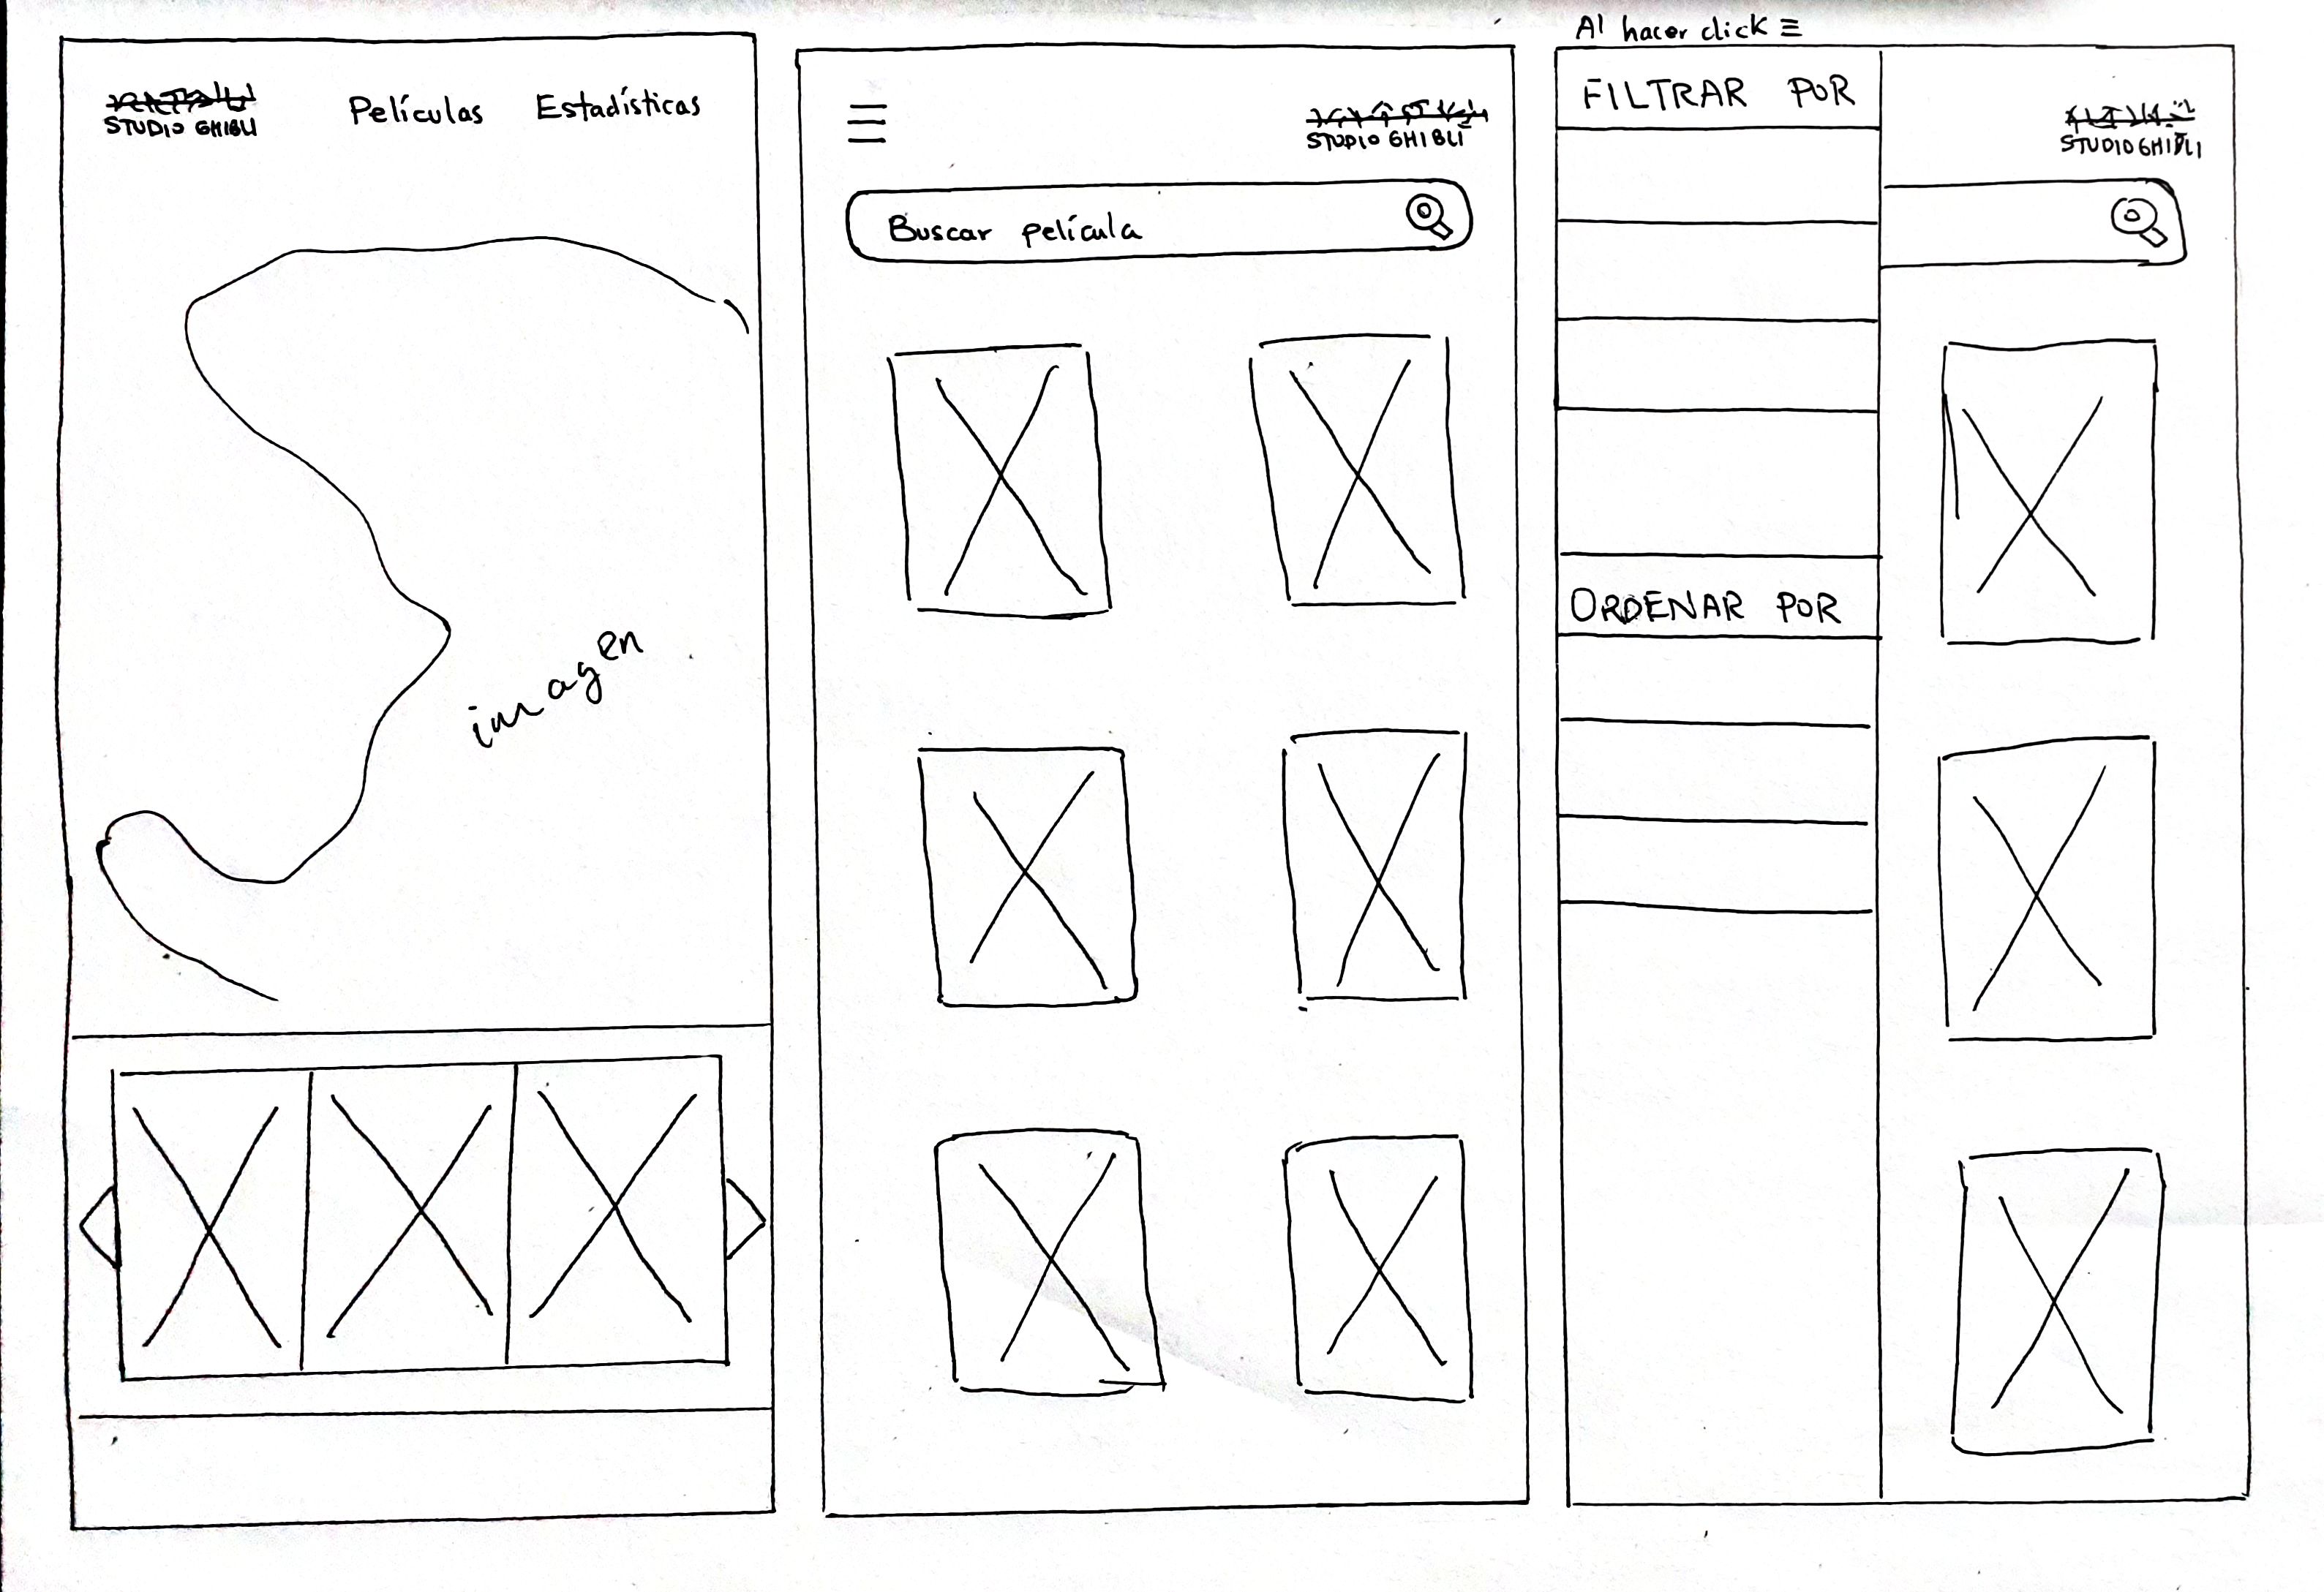 STUDIO GHIBLI
Películas Estadísticas
imagen
STUDIO GHIBLI
Buscar película
Al hacer click ☰
FILTRAR POR
STUDIO GHIBLI
ORDENAR POR